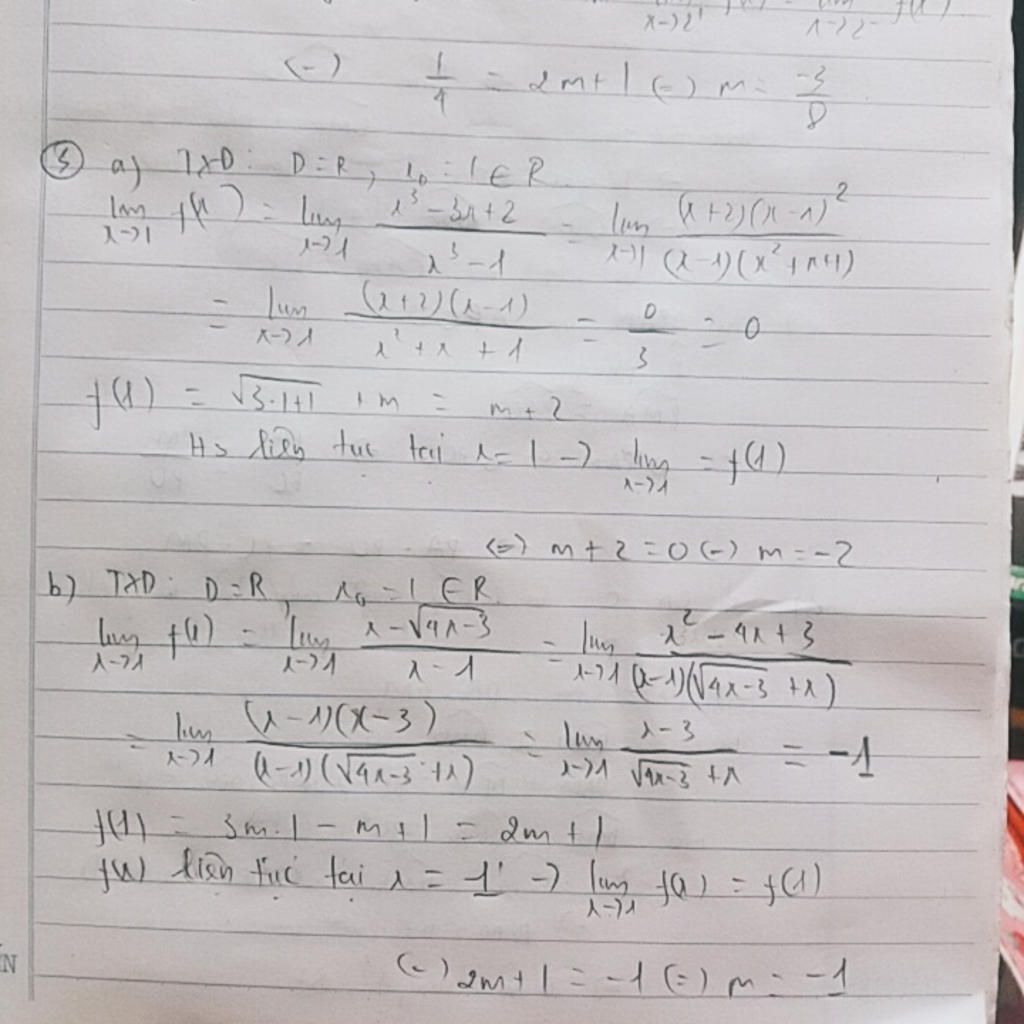 lim x→2⁺ f(x) = lim x→2⁻ f(x)
(=) 1/4 = 2m+1 (=) m = -3/8
⑤ a) TXD: D=R, x₀ = 1 ∈ R
lim x→1 f(x) = lim x→1 (x³-3x+2)/(x³-1) = lim x→1 (x+2)(x-1)²/(x-1)(x²+x+1)
= lim x→1 (x+2)(x-1)/(x²+x+1) = 0/3 = 0
f(1) = √(3.1+1) + m = m+2
Hs liên tục tại x=1 → lim x→1 = f(1)
(=) m+2=0 (=) m=-2
b) TXD: D=R, x₀ = 1 ∈ R
lim x→1 f(x) = lim x→1 (x-√(4x-3))/(x-1) = lim x→1 (x²-4x+3)/(x-1)(√(4x-3)+x)
= lim x→1 (x-1)(x-3)/(x-1)(√(4x-3)+x) = lim x→1 (x-3)/(√(4x-3)+x) = -1
f(1) = 3m.1-m+1 = 2m+1
f(x) liên tục tại x = 1 → lim x→1 f(x) = f(1)
(=) 2m+1 = -1 (=) m = -1